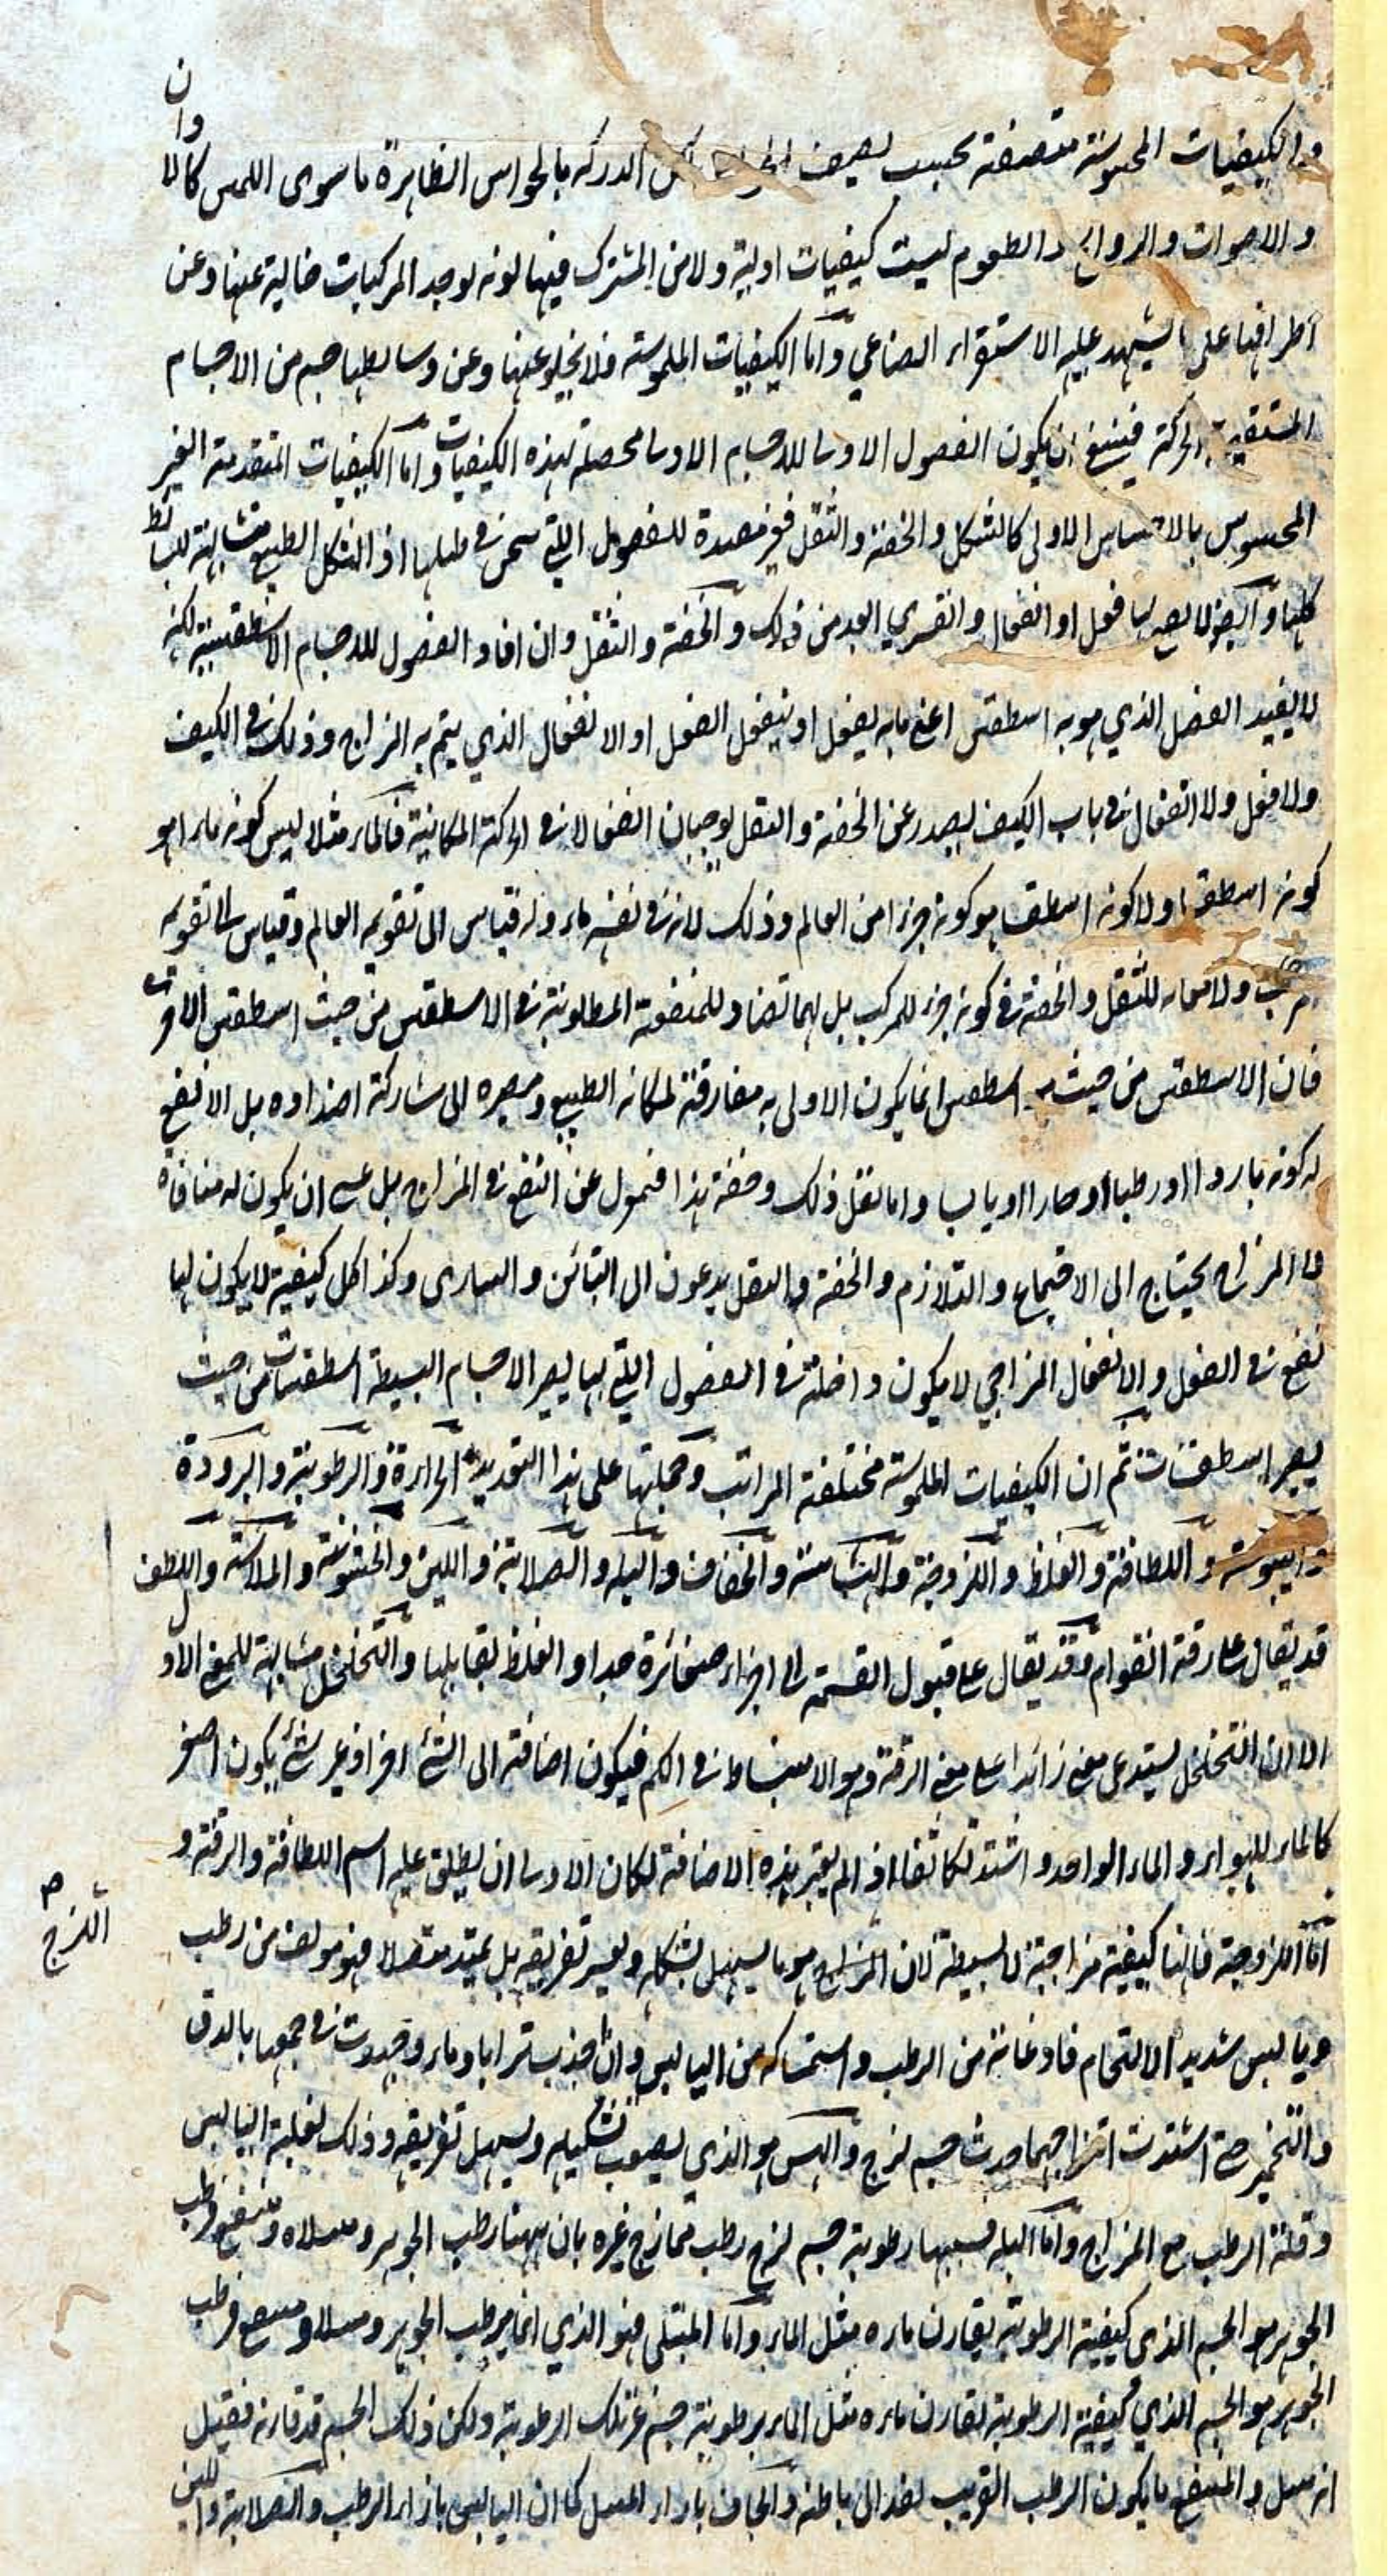 والكيفيات المحسوسة متصنفة بحسب تصنيف الحواس لكن المدركة بالحواس الظاهرة ما سوى اللمس كالالوان
والاصوات والروائح والطعوم ليست كيفيات اولية ولا من المشترك فيها لونه لوجد المركبات خالية عنها وعن
اطرافها على ما يشهد عليه الاستقراء الصناعي واما الكيفيات الملموسة فلا يخلو عنها وعن وسائطها جسم من الاجسام
المستقيمة الحركة فينبغي ان يكون الفصول الاولى للاجسام الاولى محصلة لهذه الكيفيات واما الكيفيات المتقدمة الغير
المحسوس بالاحساس الاولى كالشكل والخفة والثقل فغير مفيدة للفصول التي نحن في طلبها اذ الشكل الطبيعي متشابهة للبسائط
كلها وايضا لا يصدر لها فعل او انفعال والقسري ابعد من ذلك والخفة والثقل وان افاد الفصول للاجسام الاسطقسية لكنه
لا يفيد الفصل الذي هو به اسطقس اعني ما به يفعل او ينفعل الفعل او الانفعال الذي يتم به المزاج وذلك في الكيف
ولا فعل ولا انفعال في باب الكيف يصدر عن الخفة والثقل يوجبان انفعالا في الحركة المكانية فالماء مثلا ليس كونه ماء هو
كونه اسطقسا ولا كونه اسطقسا هو كونه جزءا من العالم وذلك لانه في نفسه ماء وله قياس الى تقويم العالم وقياس الى تقويم
مركب ولا للثقل والخفة في كونه جزء للمركب بل لهما تضاد للمنفعة المطلوبة في الاسطقس من حيث اسطقس
فان الاسطقس من حيث اسطقس انما يكون الاولى به مفارقته لمكانه الطبيعي ومصيره الى مشاركة اضداده بل الانفع
له كونه باردا او رطبا او حارا او يابسا واما ثقل ذلك وخفة هذا فمعزول عن النفع في المزاج بل عسى ان يكون له منافاة
اما المزاج يحتاج الى الاجتماع والتلازم والخفة والثقل يدعون الى التباين والتبارى وكذا كل كيفية لا يكون لها
نفع في الفعل والانفعال المزاجي لا يكون داخلة في الفصول التي بها يصير الاجسام البسيطة اسطقسات من حيث
يصير اسطقسات ثم ان الكيفيات الملموسة مختلفة المراتب وجملتها على هذا التعديد الحرارة والرطوبة والبرودة
واليبوسة واللطافة والغلظ واللزوجة والهشاشة والجفاف والبلة والصلابة واللين والخشونة والملاسة واللطف
قد يقال على رقة القوام وقد يقال على قبول القسمة الى اجزاء صغائرة جدا والغلظ يقابلها والتخلخل مشابهة للمعنى الاول
الا ان التخلخل يستدعى معنى زائدا على معنى الرقة وهو الانبساط في الكم فيكون اضافة الى الشئ اخر اذ غير شئ يكون اصغر
كالماء للهواء والماء الواحد واشتد تكاثفا اذ الم يعتبر هذه الاضافة لكان الاولى ان يطلق عليه اسم اللطافة والرقة و
اما اللزوجة فانها كيفية مزاجية لا بسيطة لان اللزج هو ما يسهل تشكله ويعسر تفريقه بل يمتد متصلا فهو مؤلف من رطب
ويابس شديد الالتحام فاذعانه من الرطب واستمساكه من اليابس وان جذبت ترابا وماء وجهدت في جمعها بالدق
والتخمير حتى اشتدت امتزاجهما حدث جسم لزج والهش هو الذي يصعب تشكيله ويسهل تفريقه وذلك لغلبة اليابس
وقلة الرطب مع المزاج واما البلة فسببها رطوبة جسم لزج رطب ممازج غيره بان ههنا رطب الجوهر ومبتلا ومنتقع ورطب
الجوهر هو الجسم الذي كيفية الرطوبة يقارن ماده مثل الماء واما المبتلى فهو الذي انما يرطب الجوهر ومبتلا ومنتقع فرطب
الجوهر هو الجسم الذي كيفية الرطوبة تقارن ماده مثل الماء برطوبة جسم غير تلك الرطوبة ولكن ذلك الجسم قد قارنه فقيل
انه مبتل والمنتقع ما يكون الرطب الغريب نفذ الى باطنه والجاف بازاء المبتل كما ان اليابس بازاء الرطب والصلابة واللين
اللزج